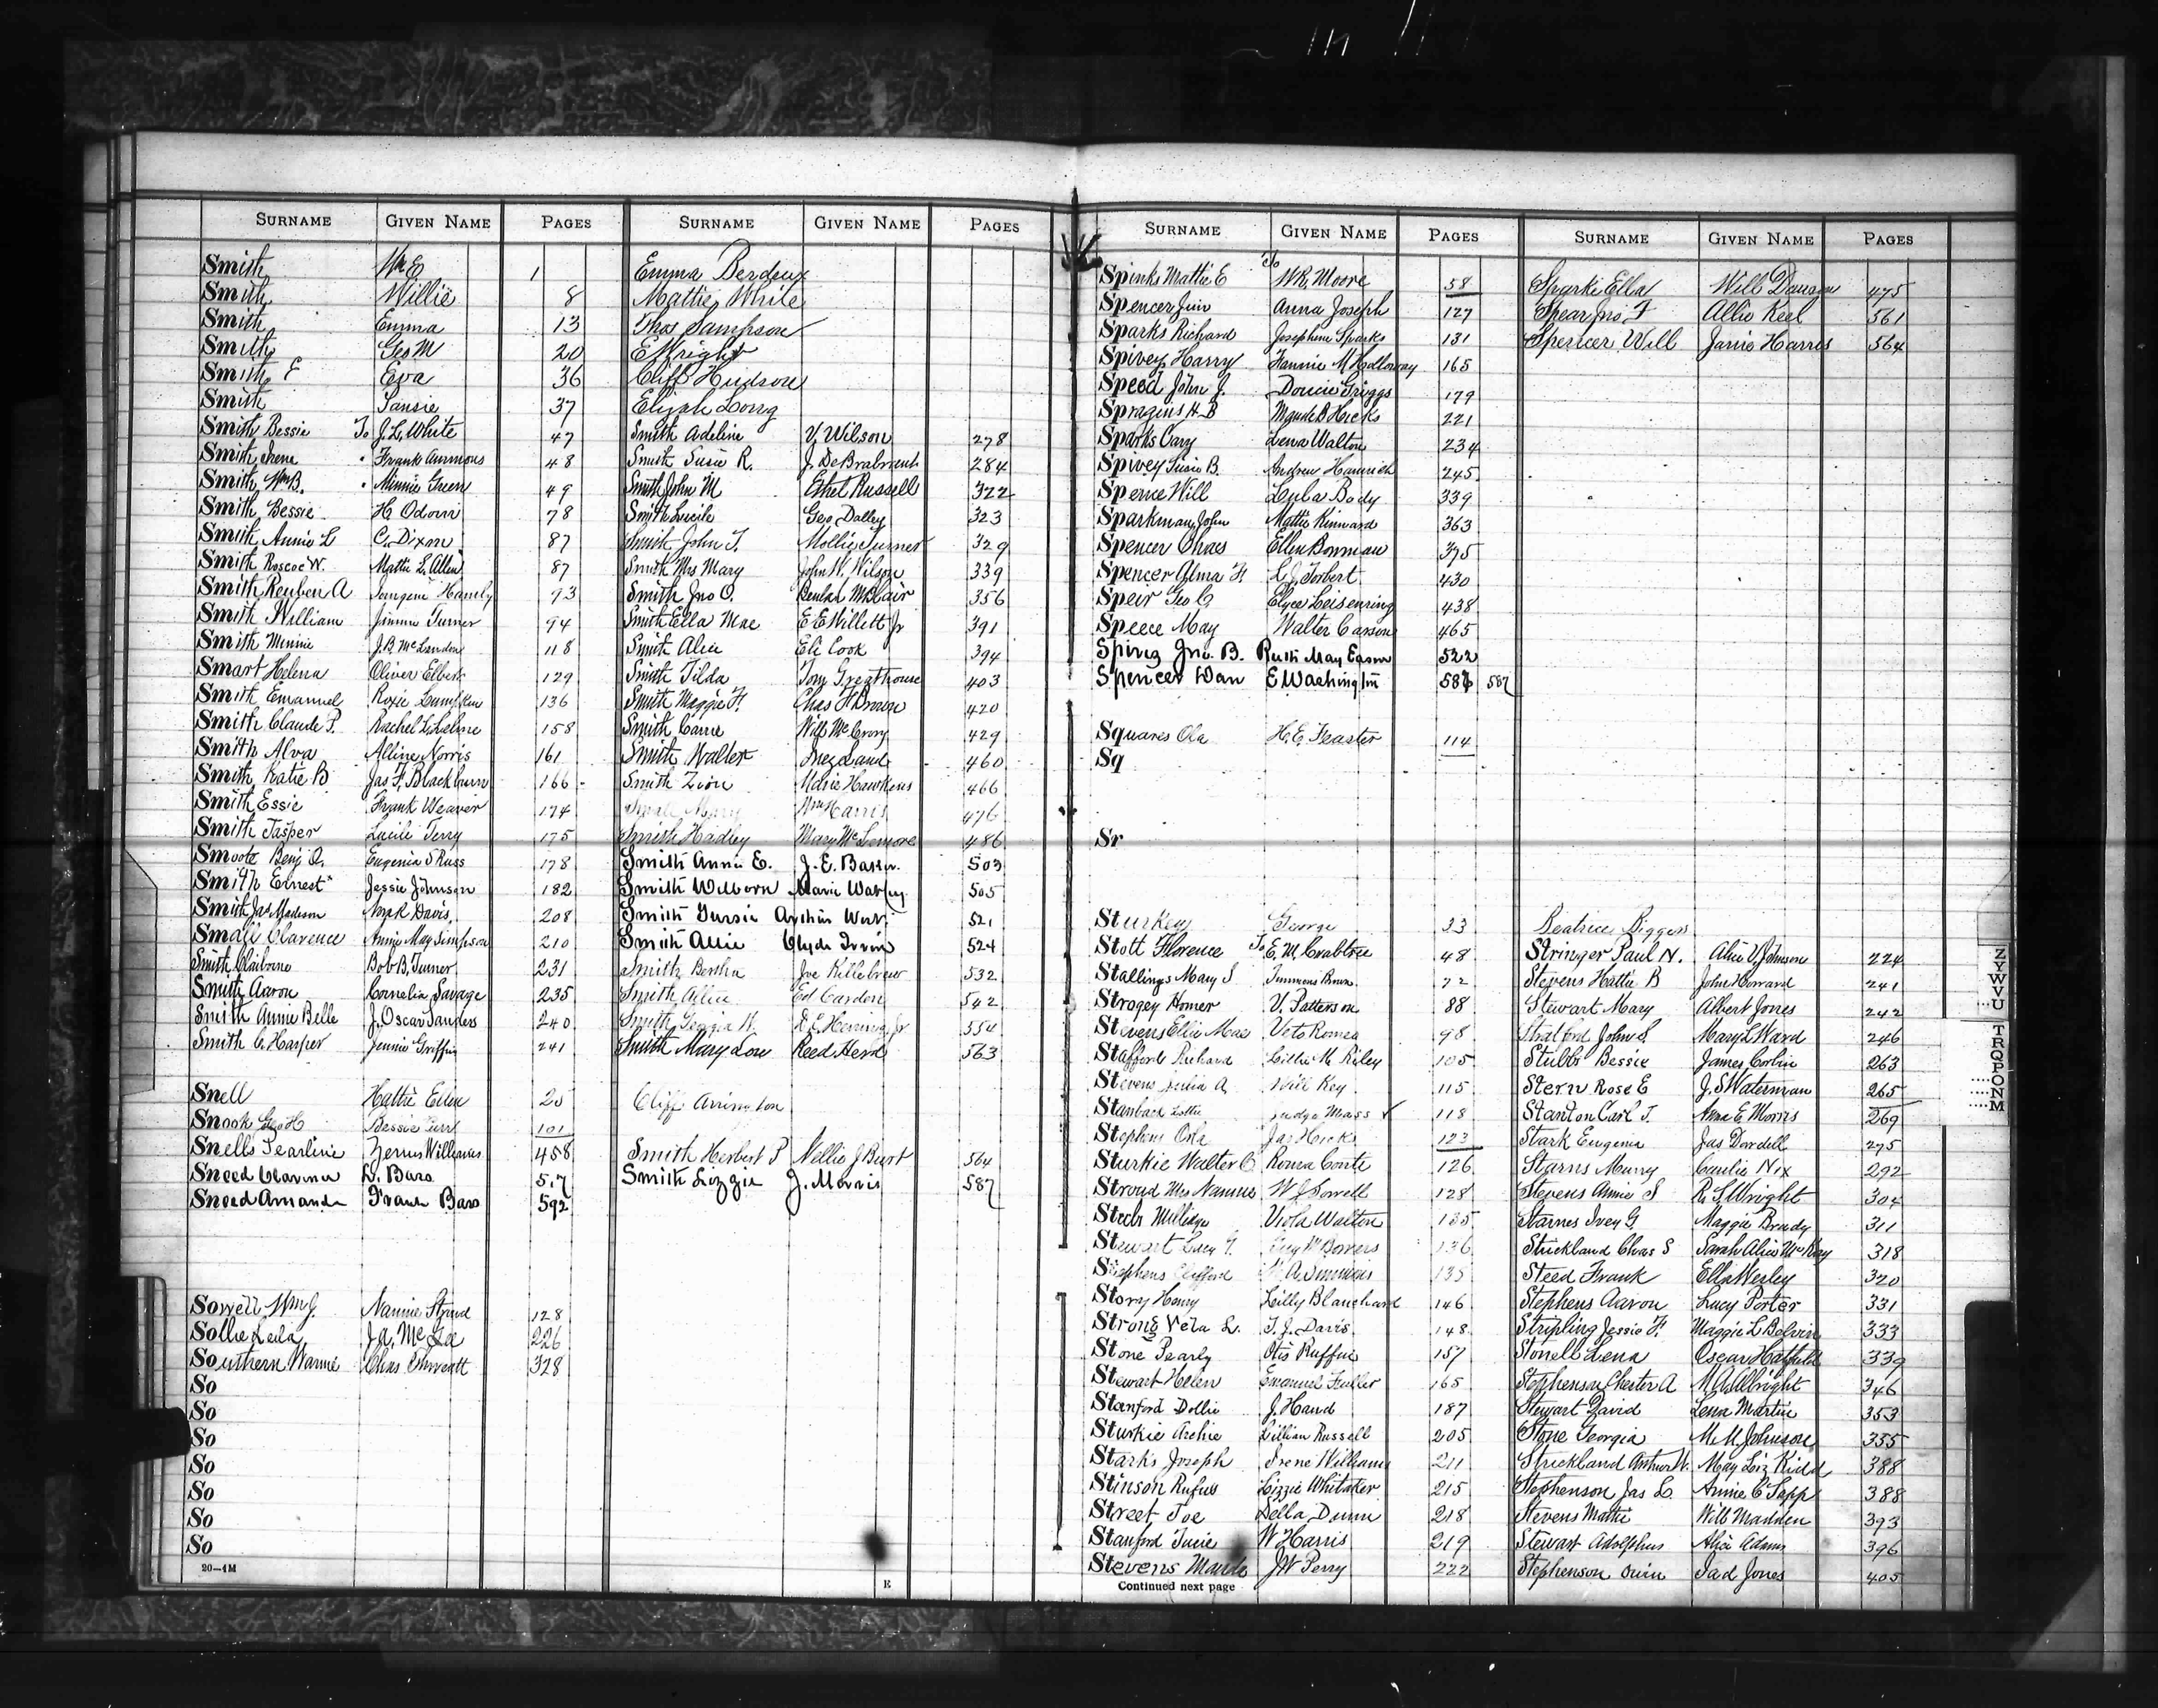 SURNAME GIVEN NAME PAGES SURNAME GIVEN NAME PAGES
Smith Wm E 1 Emma Berdeux
Smith Willie 8 Mattie White
Smith Emma 13 Thos Sampson
Smith Geo M 20 E Wright
Smith E Eva 36 Cliff Hudson
Smith 37 Elijah Long
Smith Bessie To J. L. White 47 Smith Adeline Y Wilson 278
Smith Irene " Frank Ammons 48 Smith Susie R. J. DeBrabnent 284
Smith Wm B. " Minnie Green 49 Smith John M Ethel Russell 322
Smith Bessie H Odom 78 Smith Lucile Geo Dalley 323
Smith Annie L C. Dixon 87 Smith John T. Mollie Turner 329
Smith Roscoe W. Mattie L. Allen 87 Smith Mrs Mary John W. Wilson 339
Smith Reuben A Handy 93 Smith Jno O. Beulah McBlair 356
Smith William Jimmie Turner 94 Smith Ella Mae E E Willett Jr 391
Smith Minnie J. B McLendon 118 Smith Alice Eli Cook 394
Smart Helena Oliver Elbert 129 Smith Tilda Tom Greathouse 403
Smith Emanuel Roxie Lumpkin 136 Smith Maggie F. Chas H Brown 420
Smith Claude P. Rachel L. 158 Smith Carrie Will McCrory 429
Smith Alva Alline Norris 161 Smith Walter Inez Land 460
Smith Katie B Jas F. Blackburn 166 Smith Zion Marie Hawkins 466
Smith Essie Frank Weaver 174 Small Mary Wm Harris 476
Smith Jasper Lucile Terry 175 Smith Hadley Mary McLemore 486
Smoote Benj O. Eugenia S Russ 178 Smith Annie E. J. E. 503
Smith Ernest Jessie Johnson 182 Smith Welborn Marie 505
Smith Jas Madison Nora K Davis. 208 Smith 521
Small Clarence Annie May Simpson 210 Smith Allie Clyde Irvin 524
Smith Claiborne Bob B. Turner 231 Smith Bertha Joe Killebrew 532
Smith Aaron Cornelia Savage 235 Smith Ed Cardon 542
Smith Annie Belle J. Oscar Sanders 240 Smith Georgia W. Jr 554
Smith C. Harper Jennie Griffin 241 Smith Mary Lou Reed Herd 563
Snell Hattie Ellen 25 Cliff Arrington
Snook Geo H Bessie 101
Snells Pearline Zenus Williams 458 Smith Herbert P Nellie J Burt 564
Sneed Clarence L. Bass 517 Smith Lizzie J. Morris 587
Sneed Amanda Frank Bass 592
Sowell Wm J. Nannie Stroud 128
Sollie Leila J. A. McGee 226
Southern Nannie Chas 328
So
So
So
So
So
So
So
20—4M E
SURNAME GIVEN NAME PAGES SURNAME GIVEN NAME PAGES
Spinks Mattie E To W. R. Moore 58 Sparks Ella Will Dawson 475
Spencer Jim Anna Joseph 127 Spear Jno. F Allie Keel 561
Sparks Richard Josephine Sparks 131 Spencer Will Janie Harris 564
Spivey Harry Fannie M Holloway 165
Speed John J. Dovie Griggs 179
Spragins H. B Maude B Hicks 221
Sparks Cary Lena Walton 234
Spivey Susie B. Andrew 245
Spence Will Lula Body 339
Sparkman, John Mattie Kinnard 363
Spencer Chaes Ellen Bowman 375
Spencer Alma F. L. J. Torbert 430
Speir Geo C. Elyce Leisenring 438
Speece May Walter Carson 465
Jno. B. Ruth May Eason 522
Spencer Dan E Washington 587
Squares Ola H. E. Feaster 114
Sq
Sr
Sturkey George 33 Beatrice Biggers
Stott Florence To E. M. Crabtree 48 Stringer Paul N. Alice V. Johnson 224
Stallings Mary S Timmons Brown 72 Stevens Hattie B John Howard 241
Strogey Homer V. Patterson 88 Stewart Mary Albert Jones 242
Stevens Ellie Mae Veto Romea 98 Stratford John S. Mary L Ward 246
Stafford Richard Lillie M. Riley 105 Stubbs Bessie James Corbin 263
Stevens Julia A. Will Key 115 Stern Rose E J. S Waterman 265
Stanback Lottie Judge Mass 118 Stanton Carl T. Anna E. Morris 269
Stephens Osla Jas Hicks 123 Stark Eugenia Jas Dowdell 275
Sturkie Walter C. Roma Conte 126 Starns Murry Nix 292
Stroud Mrs Nannie W J Sowell 128 Stevens Annie S R. L. Wright 304
Millidge Viola Walton 135 Starnes Ivey G. Maggie Brady 311
Stewart Lucy T. Bowers 136 Strickland Chas S Sarah Alice McKay 318
Stephens Clifford A. Simmons 135 Steed Frank Ella Wesley 320
Story Henry Lilly Blanchard 146 Stephens Aaron Lucy Porter 331
Strong Veta L. T. J. Davis. 148 Stripling Jessie F. Maggie L Belvin 333
Stone Pearly Otis Ruffin 157 Stowell Lena Oscar Hatfield 339
Stewart Helen Emanuel Fuller 165 Stephenson Chester A M. A. Albright 346
Stanford Dollie J. Hand 187 Stewart David Lena Martin 353
Sturkie Archie Lillian Russell 205 Stone Georgia M. M. Johnson 355
Starks Joseph Irene Williams 211 Strickland Arthur W. May Loiz Kidd 388
Stinson Rufus Lizzie Whitaker 215 Stephenson Jas L. Annie C Sapp 388
Street Joe Della Dunn 218 Stevens Mattie Will Madden 393
Stanford Susie W Harris 219 Stewart Adolphus Alice Adams 396
Stevens Maude J W Perry 222 Stephenson Orien Sad Jones 405
Continued next page
ZYWVU
TRQPONM